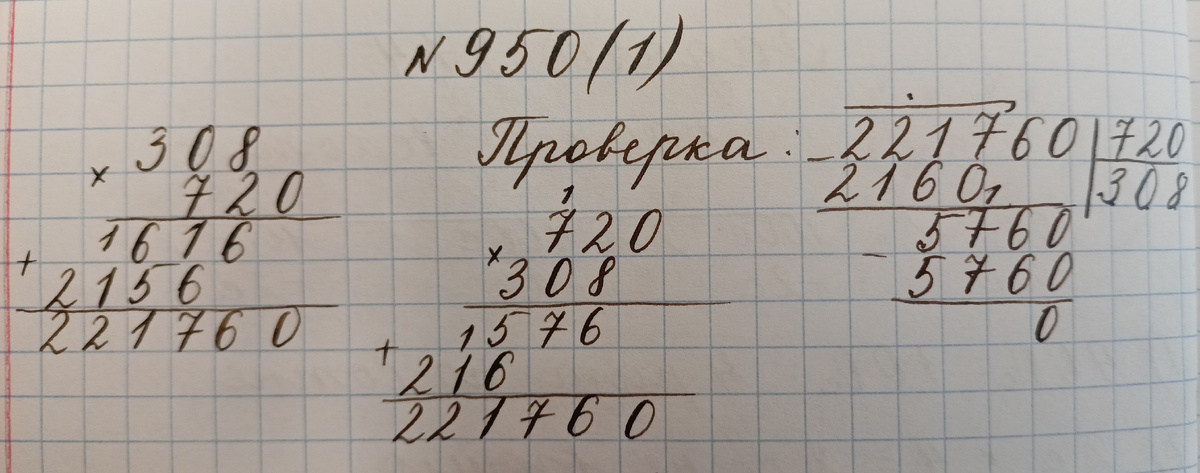 № 950 (1)
308
× 720
1616
+
2156
221760
Проверка:
1
720
×
308
1576
+
216
221760
-221760 | 720
2160, | 308
5760
-
5760
0